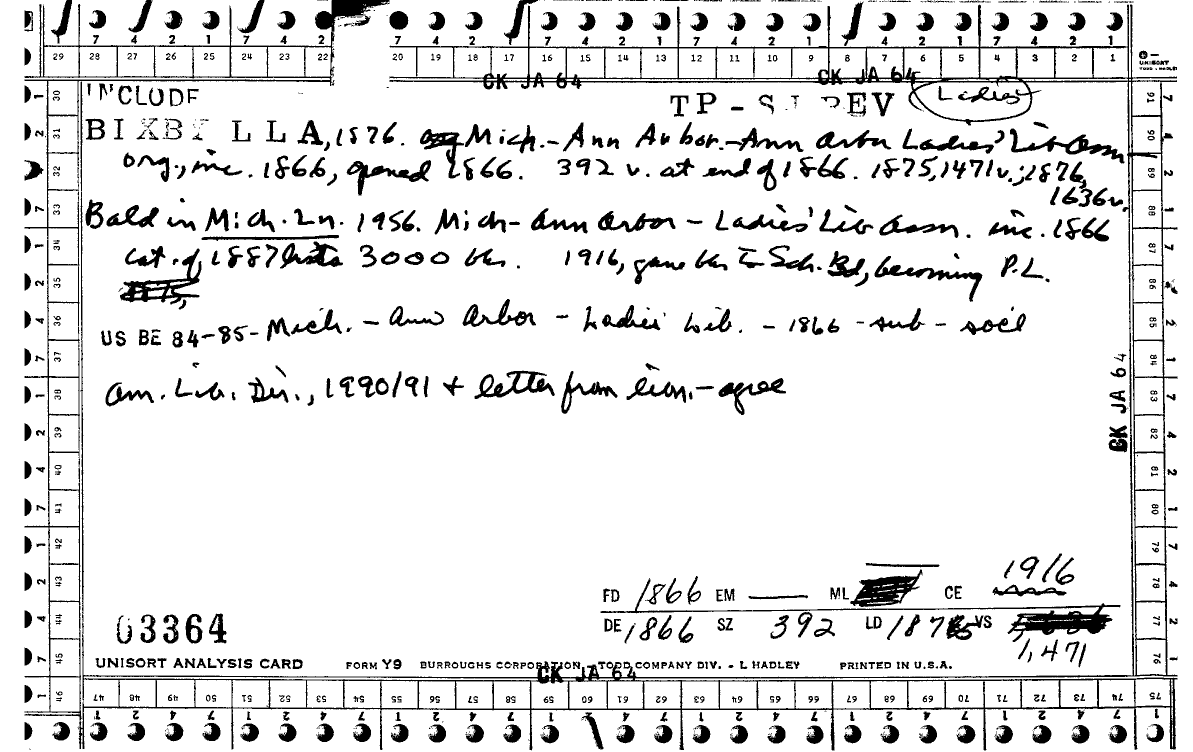 7 4 2 1 7 4 2 7 4 2 1 7 4 2 1 7 4 2 1 7 4 2 1
29 28 27 26 25 24 23 22 20 19 18 17 16 15 14 13 12 11 10 9 8 7 6 5 4 3 2 1
UNISORT
CK JA 64 CK JA 64
INCLUDE TP - Ladies'
BIXBY LLA, 1876. Mich.-Ann Arbor.-Ann Arbor Ladies' Lib Assn
org., inc. 1866, opened 1866. 392 v. at end of 1866. 1875, 1471 v.; 1876,
1636 v.
Bald in Mich. Ln. 1956. Mich - Ann Arbor - Ladies' Lib Assn. inc. 1866
cat. of 1887 lists 3000 bks. 1916, gave bks to Sch. Bd, becoming P.L.
US BE 84-85-Mich. - Ann Arbor - Ladies' Lib. - 1866 - sub - soc'l
Am. Lib. Dir., 1990/91 + letter from libn. - agree
CK JA 64
1916
FD 1866 EM — ML CE
DE 1866 SZ 392 LD 1875 VS
1,471
03364
UNISORT ANALYSIS CARD FORM Y9 BURROUGHS CORPORATION - TODD COMPANY DIV. - L HADLEY PRINTED IN U.S.A.
CK JA 64
47 48 49 50 51 52 53 54 55 56 57 58 59 60 61 62 63 64 65 66 67 68 69 70 71 72 73 74 75
30 31 32 33 34 35 36 37 38 39 40 41 42 43 44 45 46
91 90 89 88 87 86 85 84 83 82 81 80 79 78 77 76